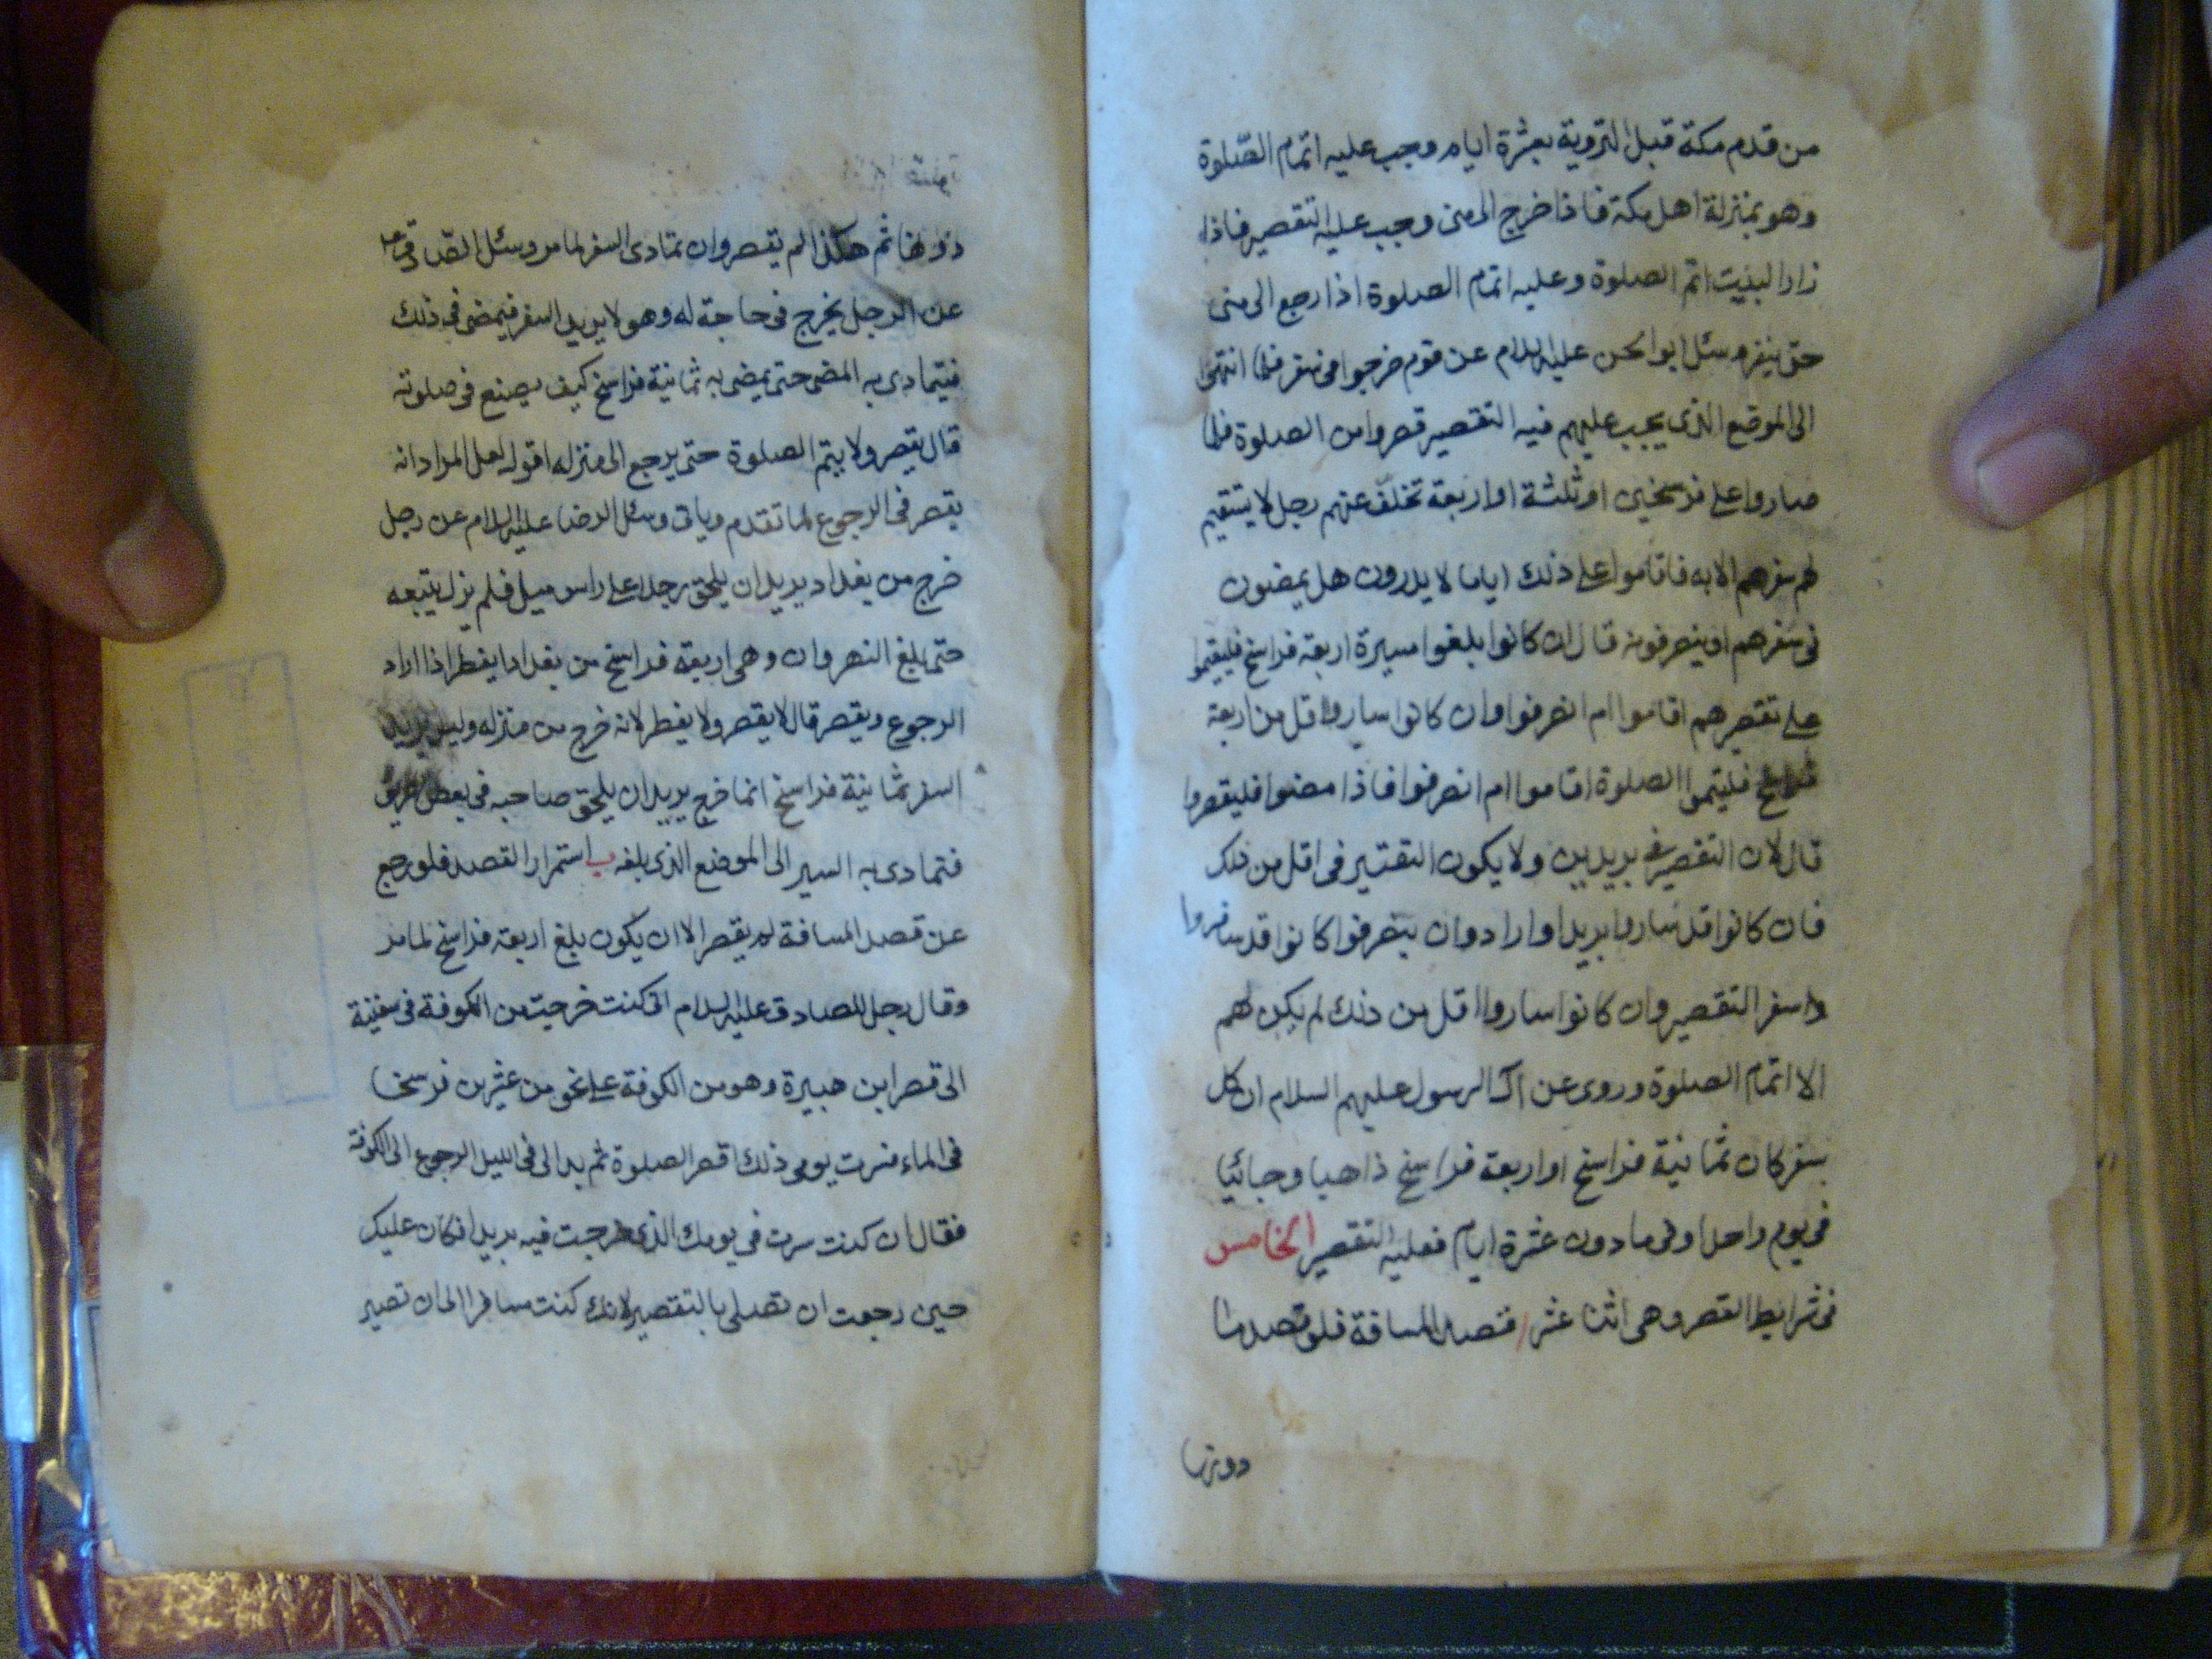 من قدم مكة قبل التروية بعشرة ايام وجب عليه اتمام الصّلوة
وهو بمنزلة اهل مكة فاذا خرج الى منى وجب عليه التقصير فاذا
زار البيت اتم الصلوة وعليه اتمام الصلوة اذا رجع الى منى
حتى ينفر وسئل ابو الحسن عليه السلام عن قوم خرجوا فى سفر فلما انتهوا
الى الموضع الذى يجب عليهم فيه التقصير قصروا من الصلوة فلما
صاروا على فرسخين او ثلثة او اربعة تخلف عنهم رجل لا يستقيم
لهم سفرهم الا به فاقاموا على ذلك اياما لا يدرون هل يمضون
فى سفرهم او ينصرفون قال ان كانوا بلغوا مسيرة اربعة فراسخ فليقيموا
على تقصيرهم اقاموا ام انصرفوا وان كانوا ساروا اقل من اربعة
فراسخ فليتموا الصلوة اقاموا ام انصرفوا فاذا مضوا فليقصروا
قال لان التقصير فى بريدين ولا يكون التقتير فى اقل من ذلك
فان كانوا قد ساروا بريدا وارادوا ان ينصرفوا كانوا قد سافروا
سفر التقصير وان كانوا ساروا اقل من ذلك لم يكن لهم
الا اتمام الصلوة وروى عن آل الرسول عليهم السلام ان كل
سفر كان ثمانية فراسخ او اربعة فراسخ ذاهبا وجائيا
فى يوم واحد او فى ما دون عشرة ايام فعليه التقصير الخامس
فى شرايط القصر وهى اثنا عشر ا قصد المسافة فلو قصد ما
دونها
دونها ثم هكذا لم يقصر وان تمادى السفر لما مر وسئل الصّادق ع
عن الرجل يخرج فى حاجة له وهو لا يريد السفر فيمضى فى ذلك
فيتمادى به المضى حتى يمضى به ثمانية فراسخ كيف يصنع فى صلوته
قال يقصر ولا يتم الصلوة حتى يرجع الى منزله اقول لعل المراد انه
يقصر فى الرجوع لما تقدم وياتى وسئل الرضا عليه السلام عن رجل
خرج من بغداد يريد ان يلحق رجلا على راس ميل فلم يزل يتبعه
حتى بلغ النهروان وهى اربعة فراسخ من بغداد ايفطر اذا اراد
الرجوع ويقصر قال لا يقصر ولا يفطر لانه خرج من منزله وليس يريد
السفر ثمانية فراسخ انما خرج يريد ان يلحق صاحبه فى بعض الطريق
فتمادى به السير الى الموضع الذى بلغه ب استمرار القصد فلو رجع
عن قصد المسافة لم يقصر الا ان يكون بلغ اربعة فراسخ لما مر
وقال رجل للصادق عليه السلام انى كنت خرجت من الكوفة فى سفينة
الى قصر ابن هبيرة وهو من الكوفة على نحو من عشرين فرسخا
فى الماء فسرت يومى ذلك اقصر الصلوة ثم بدا لى فى الليل الرجوع الى الكوفة
فقال ان كنت سرت فى يومك الذى خرجت فيه بريدا فكان عليك
حين رجعت ان تصلى بالتقصير لانك كنت مسافرا الى ان تصير